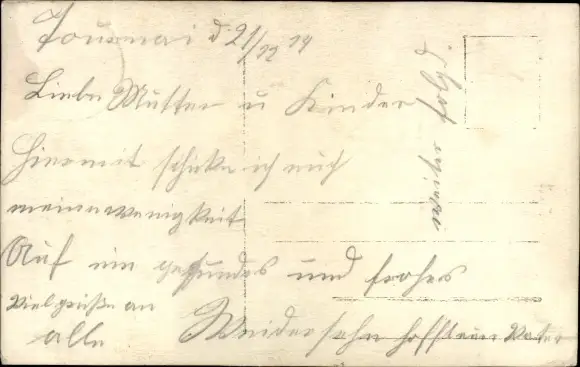 Tournai d 21/12 14
Liebe Mutter u Kinder
Hiermit schike ich euch
meinewenigkeit
Auf ein gesundes und frohes
Weidersehn hofft euer Vater
Vielgrüße an
alle